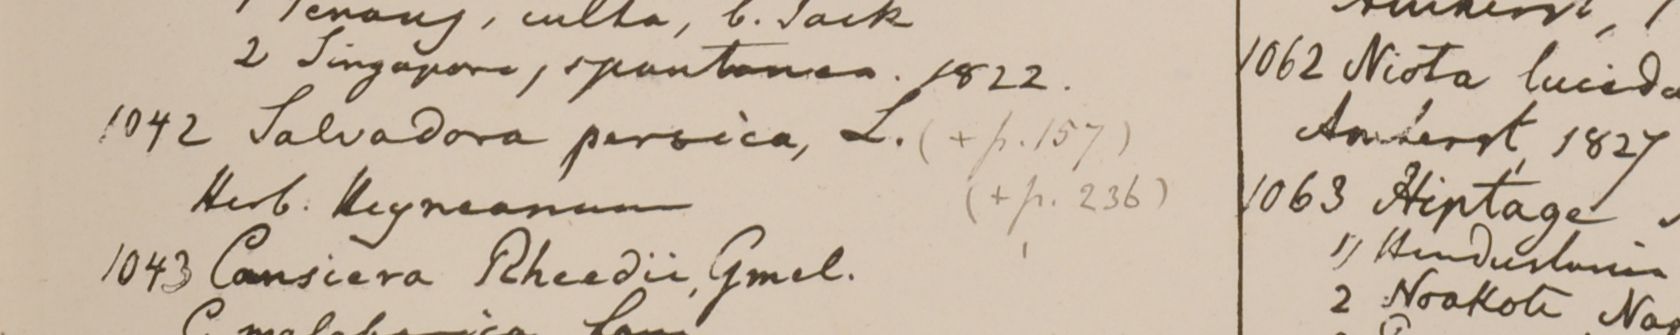 Penang, culta, C. Jack
2 Singapore, spontanea. 1822.
1042 Salvadora persica, L. (+ p. 157)
Herb. Heyneanum (+ p. 236)
1043 Cansiera Rheedii, Gmel.
C. malabarica Lam
Amherst,
1062 Niota lucida
Amherst, 1827
1063 Hiptage
1) Hindustania
2 Noakote